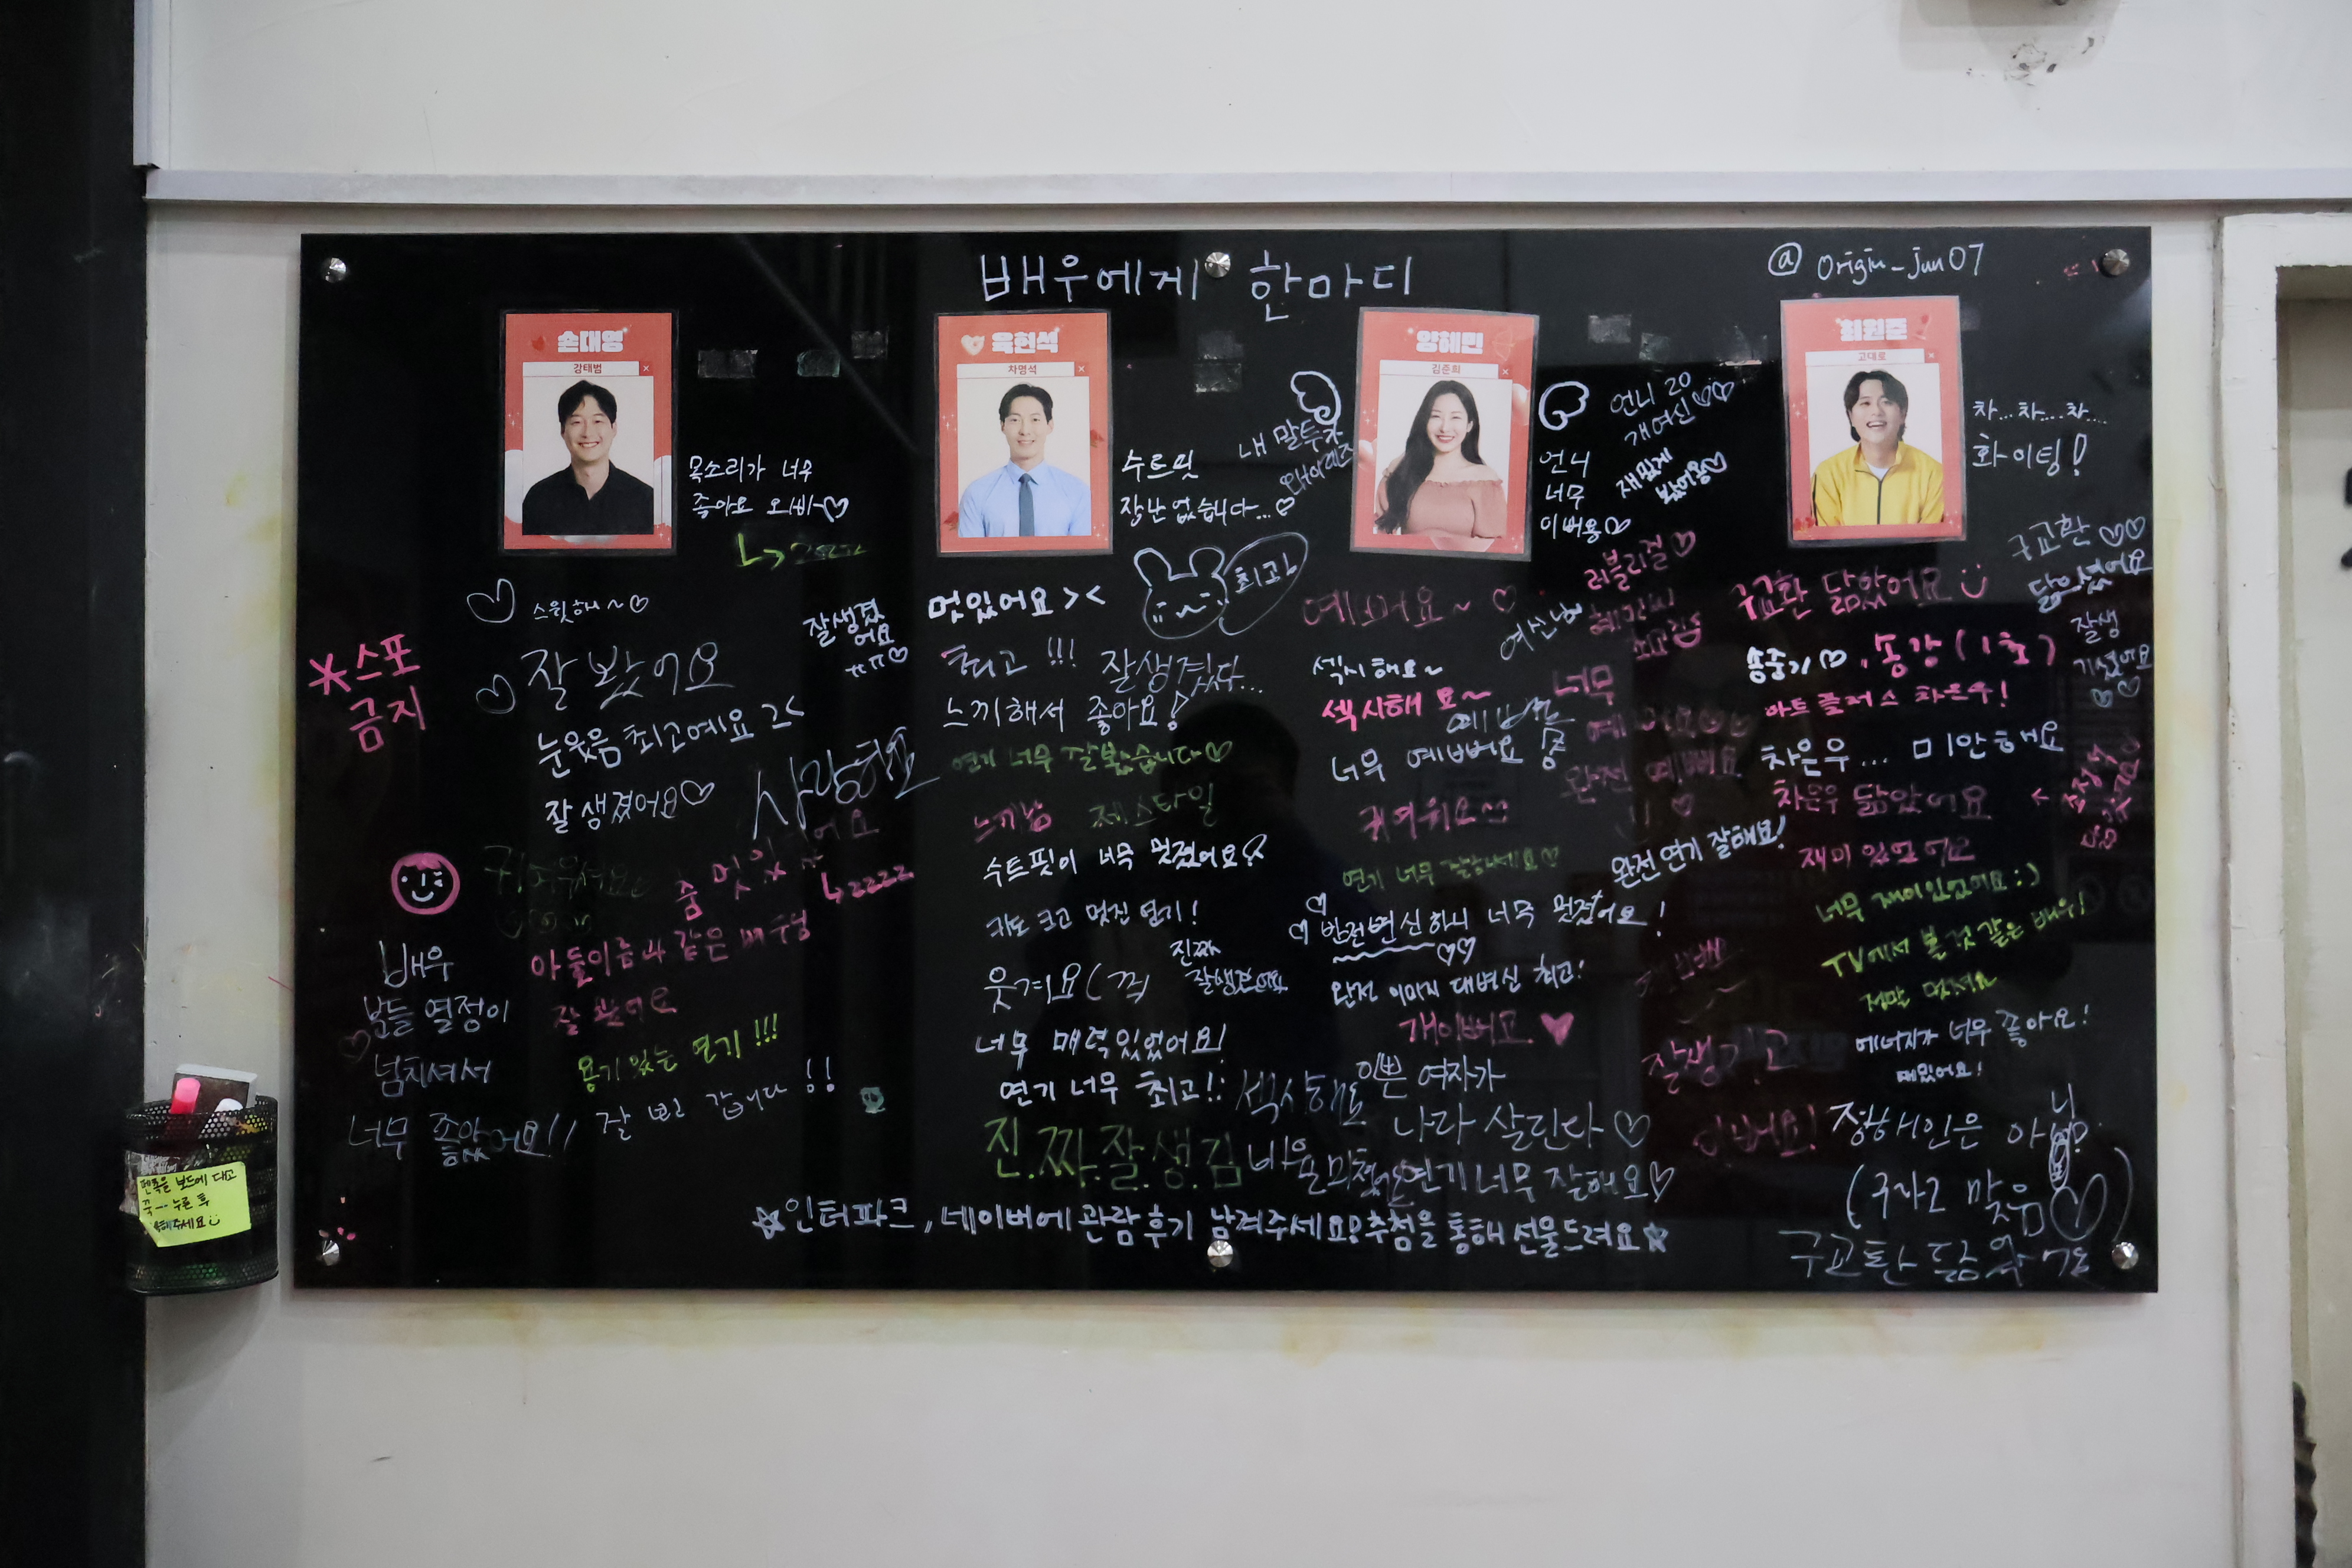 배우에게 한마디
@ origin_jun07
손대영
강태범
육현석
차명석
양혜민
김준희
최원준
고대로
목소리가 너무
좋아요 오빠~♡
수트핏
장난 없습니다...♡
내 말투가
언니
너무
이뻐용♡
언니 20
개여신♡♡
재밌게
봤어용♡
차...차...차...
화이팅!
*스포
금지
스윗해~♡
잘생겼
어요
ㅠㅠ♡
♡ 잘 봤어요
눈웃음 최고예요 >.<
잘생겼어요♡
사랑해요
좀 멋있어요
↳ㄹㄹㄹㄹ
아들이름과 같은 배우님
잘 봤어요
용기 있는 연기!!!
배우
분들 열정이
넘치셔서
너무 좋았어요!!
잘 보고 갑니다!!
멋있어요 ><
최고
최고!!!
잘생겼다...
느끼해서 좋아요!
연기 너무 잘봤습니다♡
느끼남
제스타일
수트핏이 너무 멋졌어요
키도 크고 멋진 연기!
진짜
웃겨요
너무 매력있었어요!
연기 너무 최고!!
진.짜.잘.생.김
러블리걸♡
여신님
섹시해요~
섹시해요~
너무
너무 예뻐요
완전 예뻐요
귀여워요
연기 너무 잘하세요♡
완전 연기 잘해요!
반전변신하니 너무 멋졌어요!
♡♡
완전 이미지 대변신 최고!
개이뻐요 ♥
섹시해요
이쁜 여자가
나라 살린다♡
연기 너무 잘해요♡
구교환 닮았어요
구교환 ♡♡
닮으셨어요
잘생
기셨어요
♡♡
송중기♡, 송강(1초)
아트플러스 차은우!
차은우... 미안해요
차은우 닮았어요
재미있었어요
너무 재미있었어요 :)
TV에서 볼 것 같은 배우!
정말 멋져요
에너지가 너무 좋아요!
재밌어요!
잘생기고
이뻐요!
정해인은 아님
☆인터파크, 네이버에 관람후기 남겨주세요! 추첨을 통해 선물드려요☆
펜촉을 보드에 대고
꾹~ 누른 후